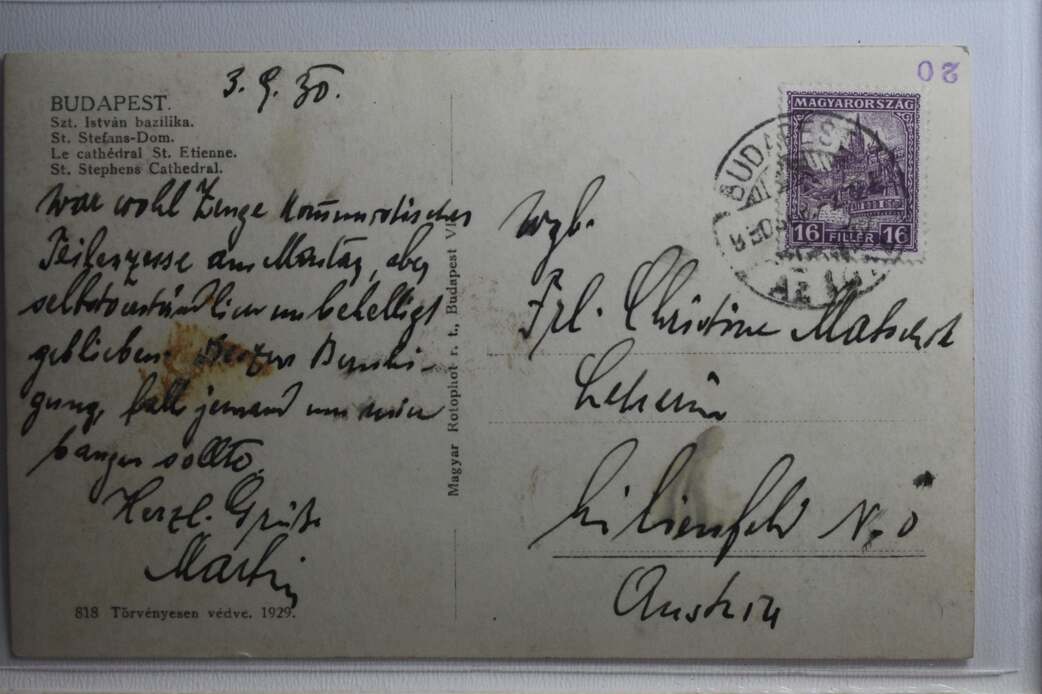 3.9.30.
BUDAPEST.
Szt. István bazilika.
St. Stefans-Dom.
Le cathédral St. Etienne.
St. Stephens Cathedral.
war wohl Zeuge kommunistischer
am Montag, aber
selbstverständlich unbehelligt
geblieben. Beruhi-
gung, falls jemand um mich
bangen sollte.
Herzl. Grüße
Martin
818 Törvényesen védve. 1929.
Magyar Rotophot r. t., Budapest VI.
20
MAGYARORSZÁG
16 FILLÉR 16
BUDAPEST
Frl. Christine
Lilienfeld N.Ö
Austria